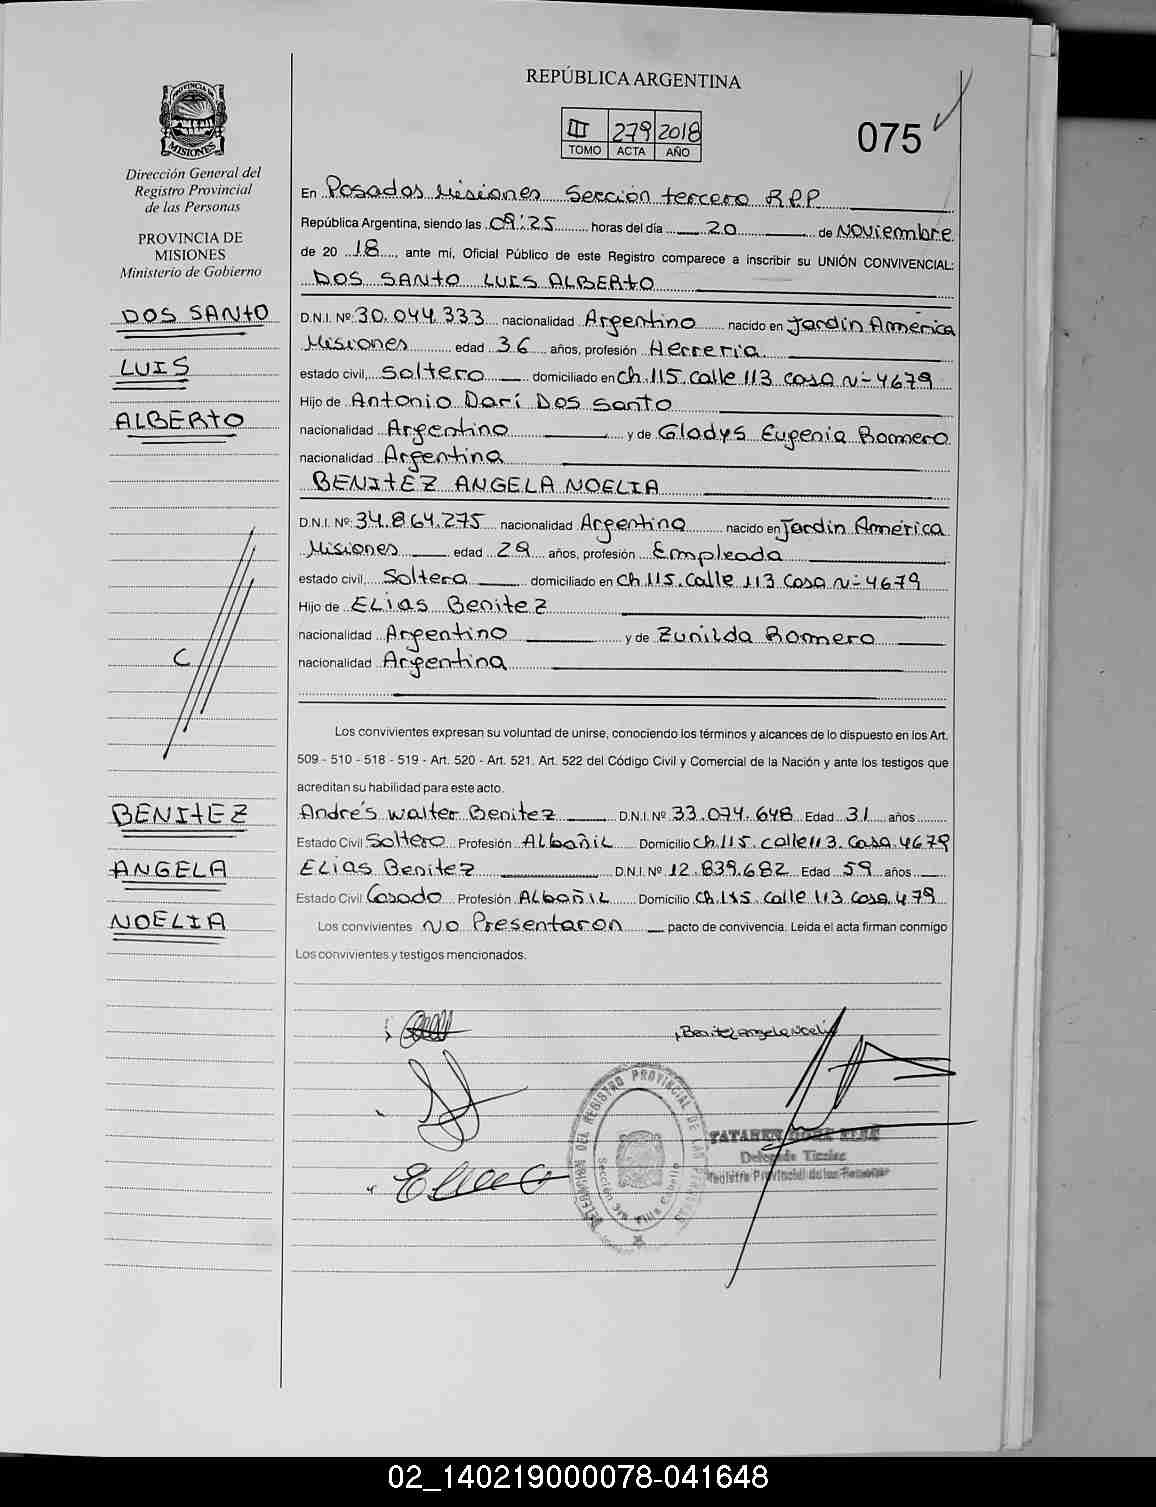 REPÚBLICA ARGENTINA
III 279 2018
TOMO ACTA AÑO
075
PROVINCIA DE
MISIONES
Dirección General del
Registro Provincial
de las Personas
PROVINCIA DE
MISIONES
Ministerio de Gobierno
DOS SANtO
LUIS
ALBERtO
BENItEZ
ANGELA
NOELIA
En Posadas Misiones Sección tercera R.P.P
República Argentina, siendo las 09:25 horas del día 20 de Noviembre
de 20 18, ante mí, Oficial Público de este Registro comparece a inscribir su UNIÓN CONVIVENCIAL:
DOS SANtO LUIS ALBERtO
D.N.I. Nº 30.044.333 nacionalidad Argentino nacido en Jardín América
Misiones edad 36 años, profesión Herreria
estado civil, Soltero domiciliado en ch.115.calle 113 casa N-4679
Hijo de Antonio Darí Dos Santo
nacionalidad Argentino y de Gladys Eugenia Romero
nacionalidad Argentina
BENItEZ ANGELA NOELIA
D.N.I. Nº 34.864.275 nacionalidad Argentina nacido en Jardín América
Misiones edad 29 años, profesión Empleada
estado civil, Soltera domiciliado en ch.115.calle 113 casa N-4679
Hijo de ELias Benitez
nacionalidad Argentino y de Zunilda Romero
nacionalidad Argentina
Los convivientes expresan su voluntad de unirse, conociendo los términos y alcances de lo dispuesto en los Art.
509 - 510 - 518 - 519 - Art. 520 - Art. 521. Art. 522 del Código Civil y Comercial de la Nación y ante los testigos que
acreditan su habilidad para este acto.
Andrés Walter Benitez D.N.I. Nº 33.074.648 Edad 31 años
Estado Civil Soltero Profesión ALbañiL Domicilio ch.115.calle113.casa.4679
ELias Benitez D.N.I. Nº 12.839.682 Edad 59 años
Estado Civil Casado Profesión ALbañiL Domicilio ch.115.calle 113 casa.479
Los convivientes NO Presentaron pacto de convivencia. Leída el acta firman conmigo
Los convivientes y testigos mencionados.
Benitez Angela Noelia
DELEGACION DEL REGISTRO PROVINCIAL DE LAS PERSONAS
Sección 3ra Villa Cabello
Delegada Titular
Registro Provincial de las Personas
02_140219000078-041648